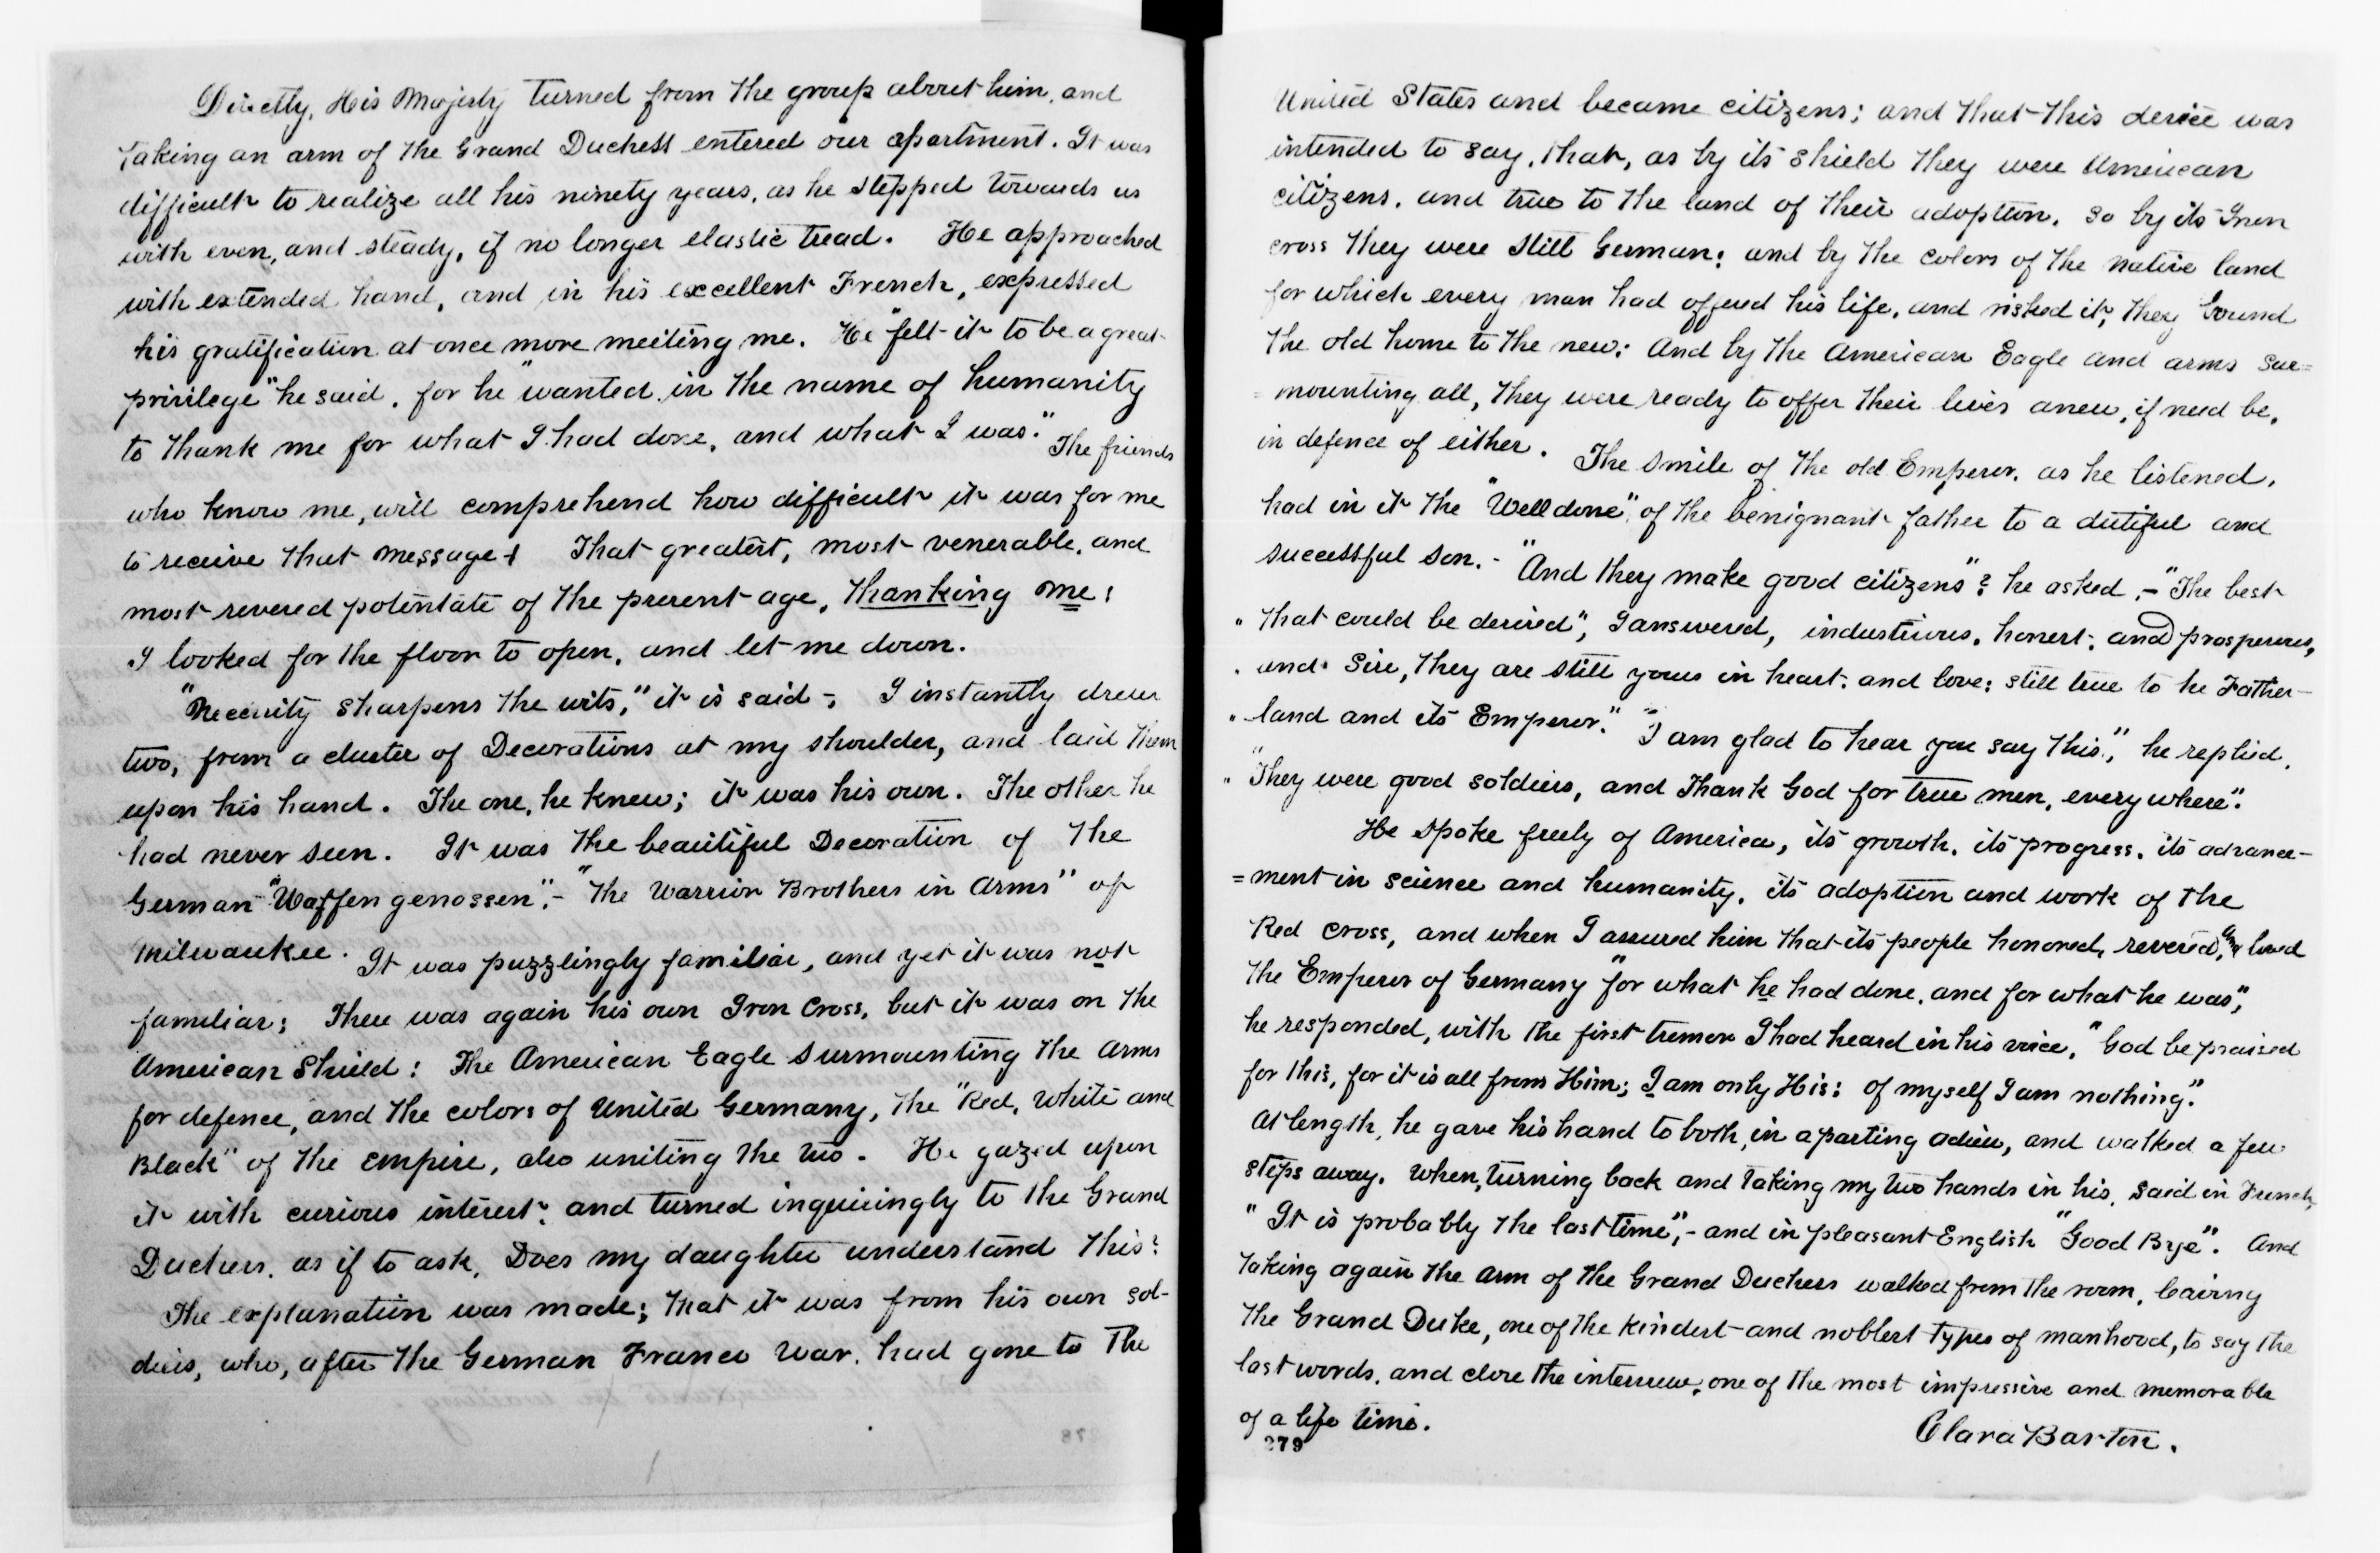 Directly, His Majesty turned from the group about him, and
taking an arm of the Grand Duchess entered our apartment. It was
difficult to realize all his ninety years, as he stepped towards us
with even, and steady, if no longer elastic tread. He approached
with extended hand, and in his excellent French, expressed
his gratification at once more meeting me. He "felt it to be a great
privilege" he said, for he "wanted in the name of humanity
to thank me for what I had done, and what I was." The friends
who know me, will comprehend how difficult it was for me
to receive that message! That greatest, most venerable, and
most revered potentate of the present age, thanking me!
I looked for the floor to open, and let me down.
"Necessity sharpens the wits," it is said -; I instantly drew
two, from a cluster of Decorations at my shoulder, and laid them
upon his hand. The one, he knew; it was his own. The other he
had never seen. It was the beautiful Decoration of the
German "Waffengenossen", - "The Warrior Brothers in Arms" of
Milwaukee. It was puzzlingly familiar, and yet it was not
familiar; There was again his own Iron Cross, but it was on the
American Shield: The American Eagle surmounting the Arms
for defence, and the colors of United Germany, the "Red, White and
Black" of the Empire, also uniting the two. He gazed upon
it with curious interest, and turned inquiringly to the Grand
Duchess, as if to ask, Does my daughter understand this?
The explanation was made; that it was from his own sol-
diers, who, after the German Franco War, had gone to the
United States and became citizens; and that this device was
intended to say, that, as by its shield they were American
citizens, and true to the land of their adoption, so by its Iron
cross they were still German; and by the colors of the native land
for which every man had offered his life, and risked it, they bound
the old home to the new: And by the American Eagle and arms sur=
=mounting all, they were ready to offer their lives anew, if need be,
in defence of either. The smile of the old Emperor, as he listened,
had in it the "Well done", of the benignant father to a dutiful and
successful son. - "And they make good citizens"? he asked, - "The best
" that could be desired", I answered, industrious, honest, and prosperous,
" and Sire, they are still yours in heart, and love; still true to he Father-
" land and its Emperor." "I am glad to hear you say this," he replied,
" "They were good soldiers, and thank God for true men, everywhere".
He spoke freely of America, its growth, its progress, its advance-
=ment in science and humanity, its adoption and work of the
Red Cross, and when I assured him that its people honored, revered, and loved
the Emperor of Germany "for what he had done, and for what he was",
he responded, with the first tremor I had heard in his voice, "God be praised
for this, for it is all from Him; I am only His: of myself I am nothing."
At length, he gave his hand to both, in a parting adieu, and walked a few
steps away. When, turning back and taking my two hands in his, said in French,
" It is probably the last time", - and in pleasant English "Good Bye". And
taking again the arm of the Grand Duchess walked from the room, leaving
the Grand Duke, one of the kindest and noblest types of manhood, to say the
last words, and close the interview, one of the most impressive and memorable
of a life time.
Clara Barton.
279